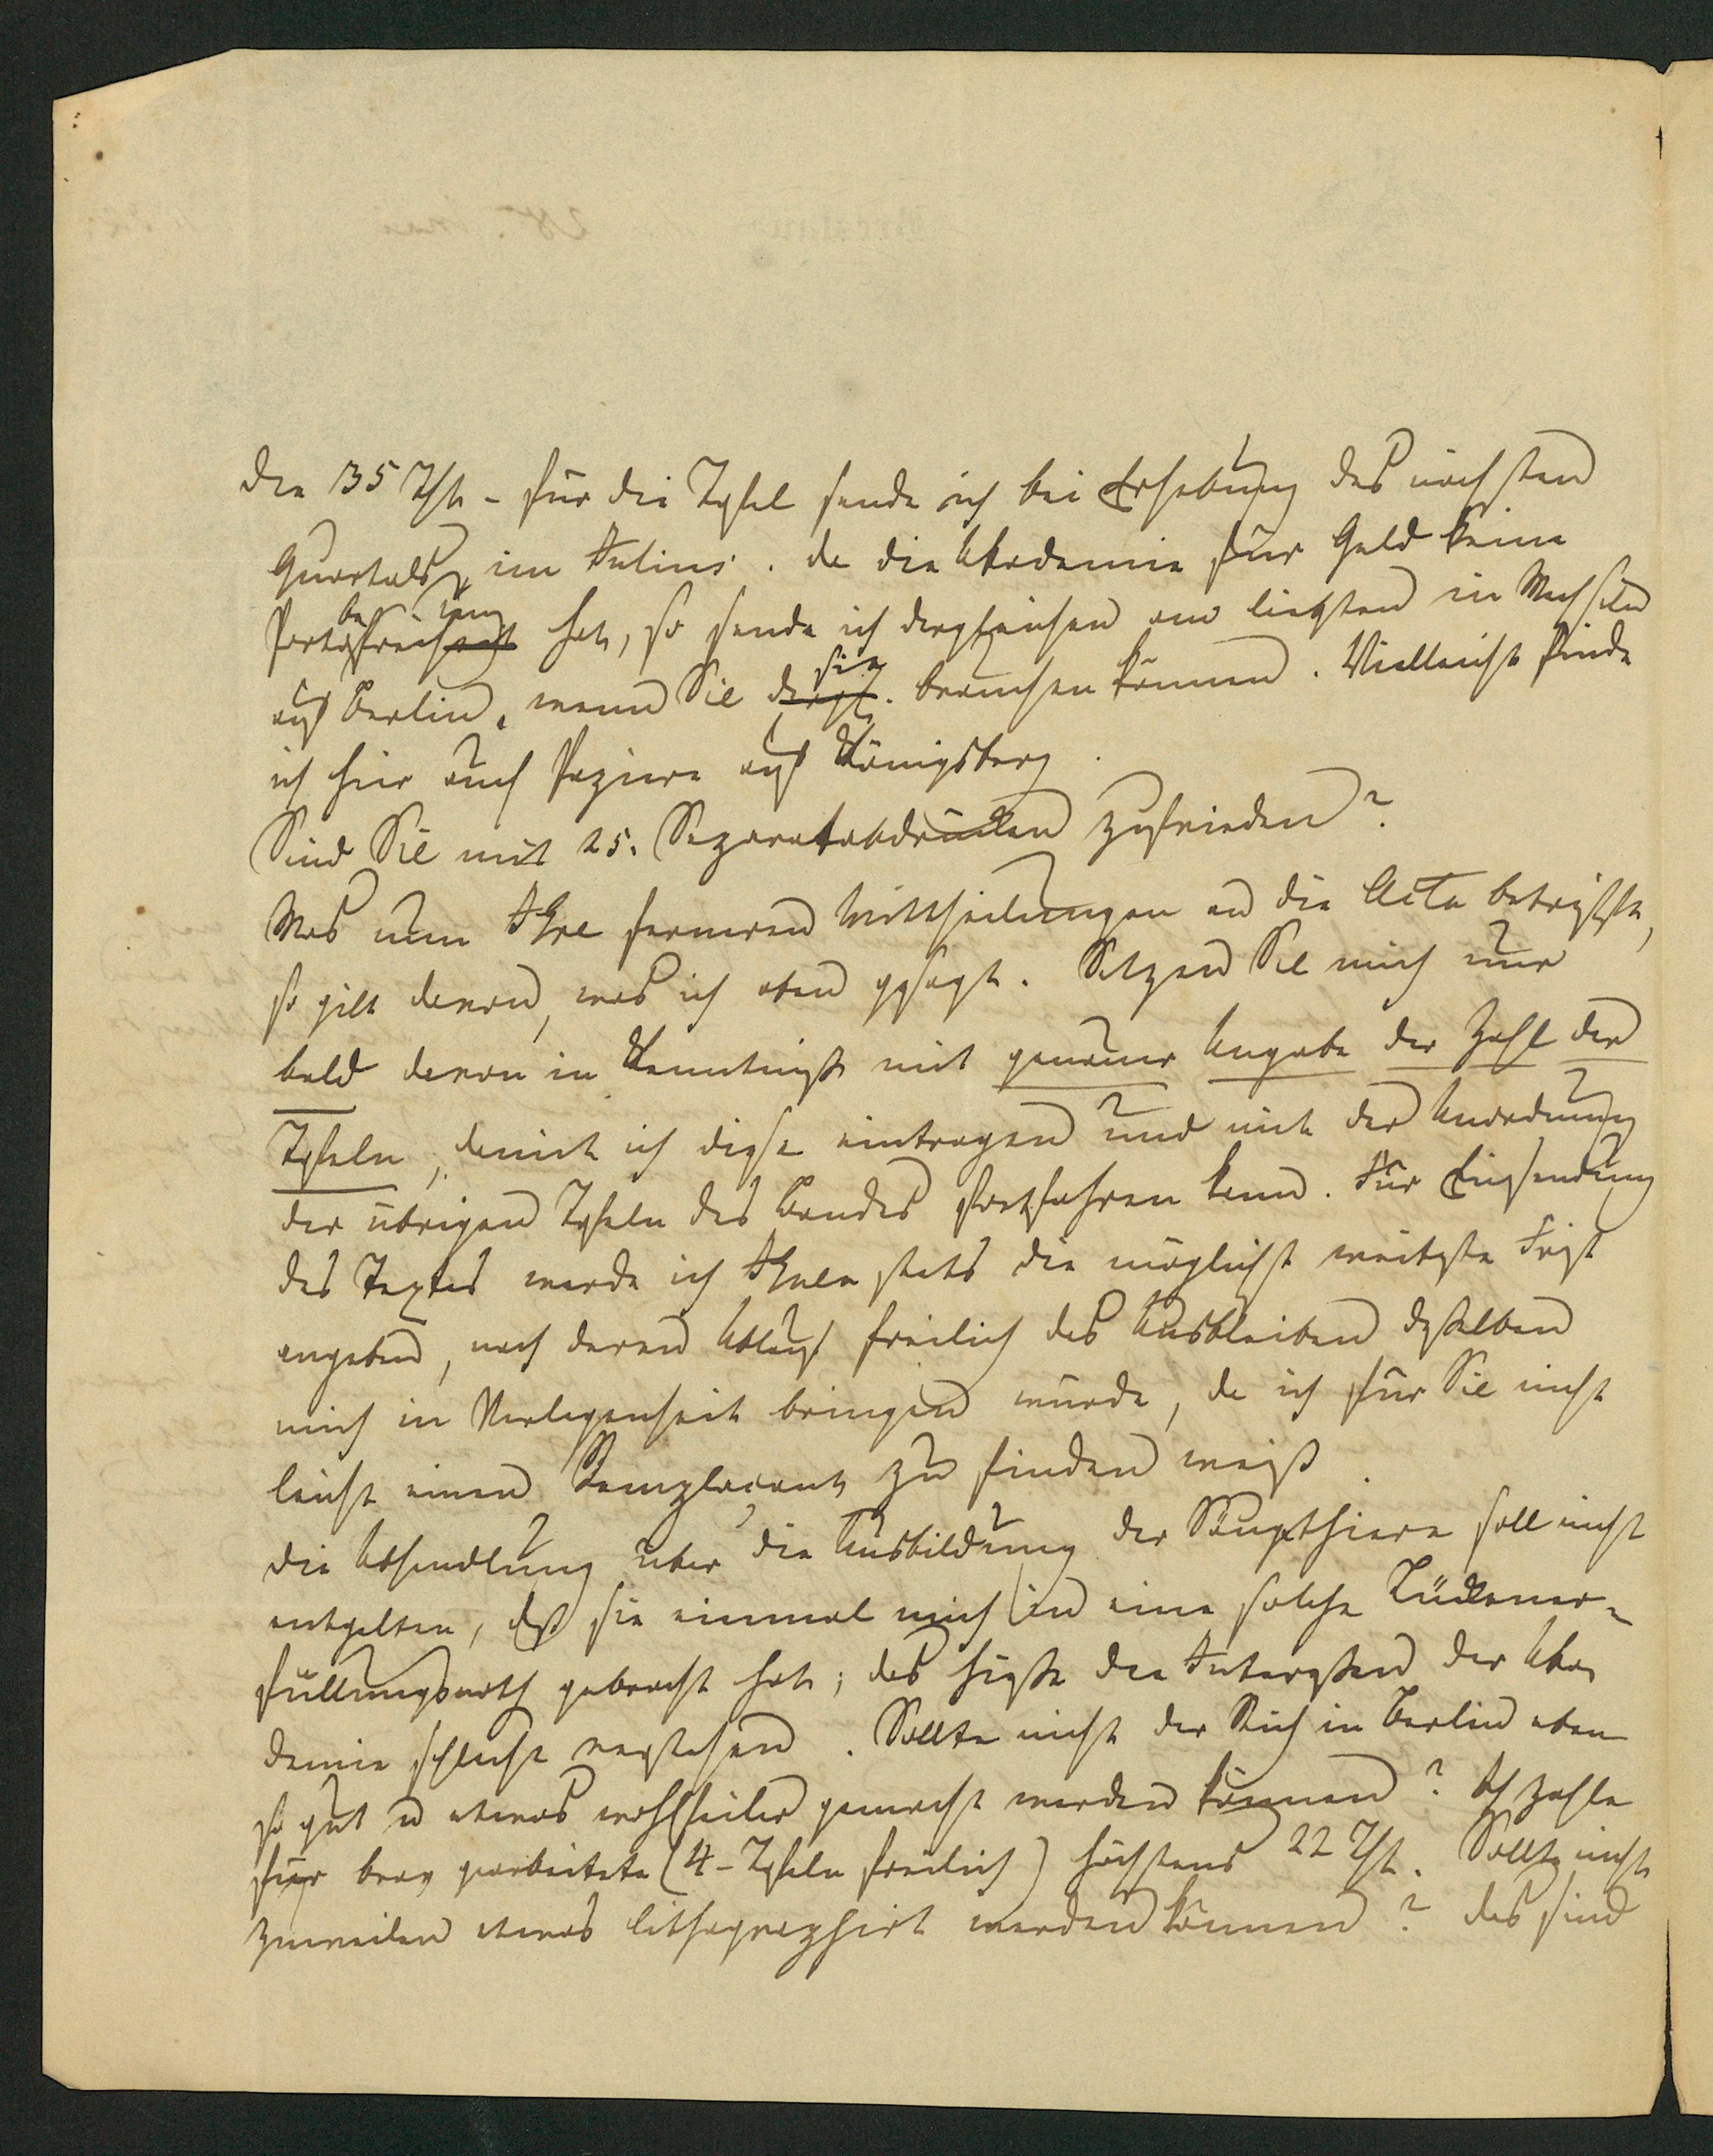 Die 135 Thl. – für die Tafel sende ich bei Erhebung des nächsten
Quartals, im Julius. Da die Akademie für Geld keine
Portobefreiung hat, so sende ich dergleichen am liebsten in Wechseln
auf Berlin, wenn Sie sie brauchen können. Vielleicht finde
ich hier auch Papiere auf Königsberg.
Sind Sie mit 25. Separatabdrücken zufrieden?
Was nun Ihre ferneren Mittheilungen an die Acta betrifft,
so gilt davon, was ich oben gesagt. Setzen Sie mich nur
bald davon in Kenntniß mit genauer Angabe der Zahl der
Tafeln, damit ich diese eintragen und mit der Anordnung
der übrigen Tafeln des Bandes fortfahren kann. Für Einsendung
des Textes werde ich Ihnen stets die möglichst weiteste Frist
angeben, nach deren Ablauf freilich das Ausbleiben desselben
mich in Verlegenheit bringen würde, da ich für Sie nicht
leicht einen Remplaçant zu finden weiß.
Die Abhandlung über die Ausbildung der Säugthiere soll nicht
entgelten, daß sie einmal mich in eine solche Lückener-
füllungsnoth gebracht hat; das hieße die Interessen der Aka
demie schlecht verstehen. Sollte nicht der Stich in Berlin eben
so gut u etwas wohlfeiler gemacht werden können? Ich zahle
für brav gearbeitete (4-Tafeln freilich) höchstens 22 Thl. Sollte nicht
zuweilen etwas lithographirt werden können? Das sind